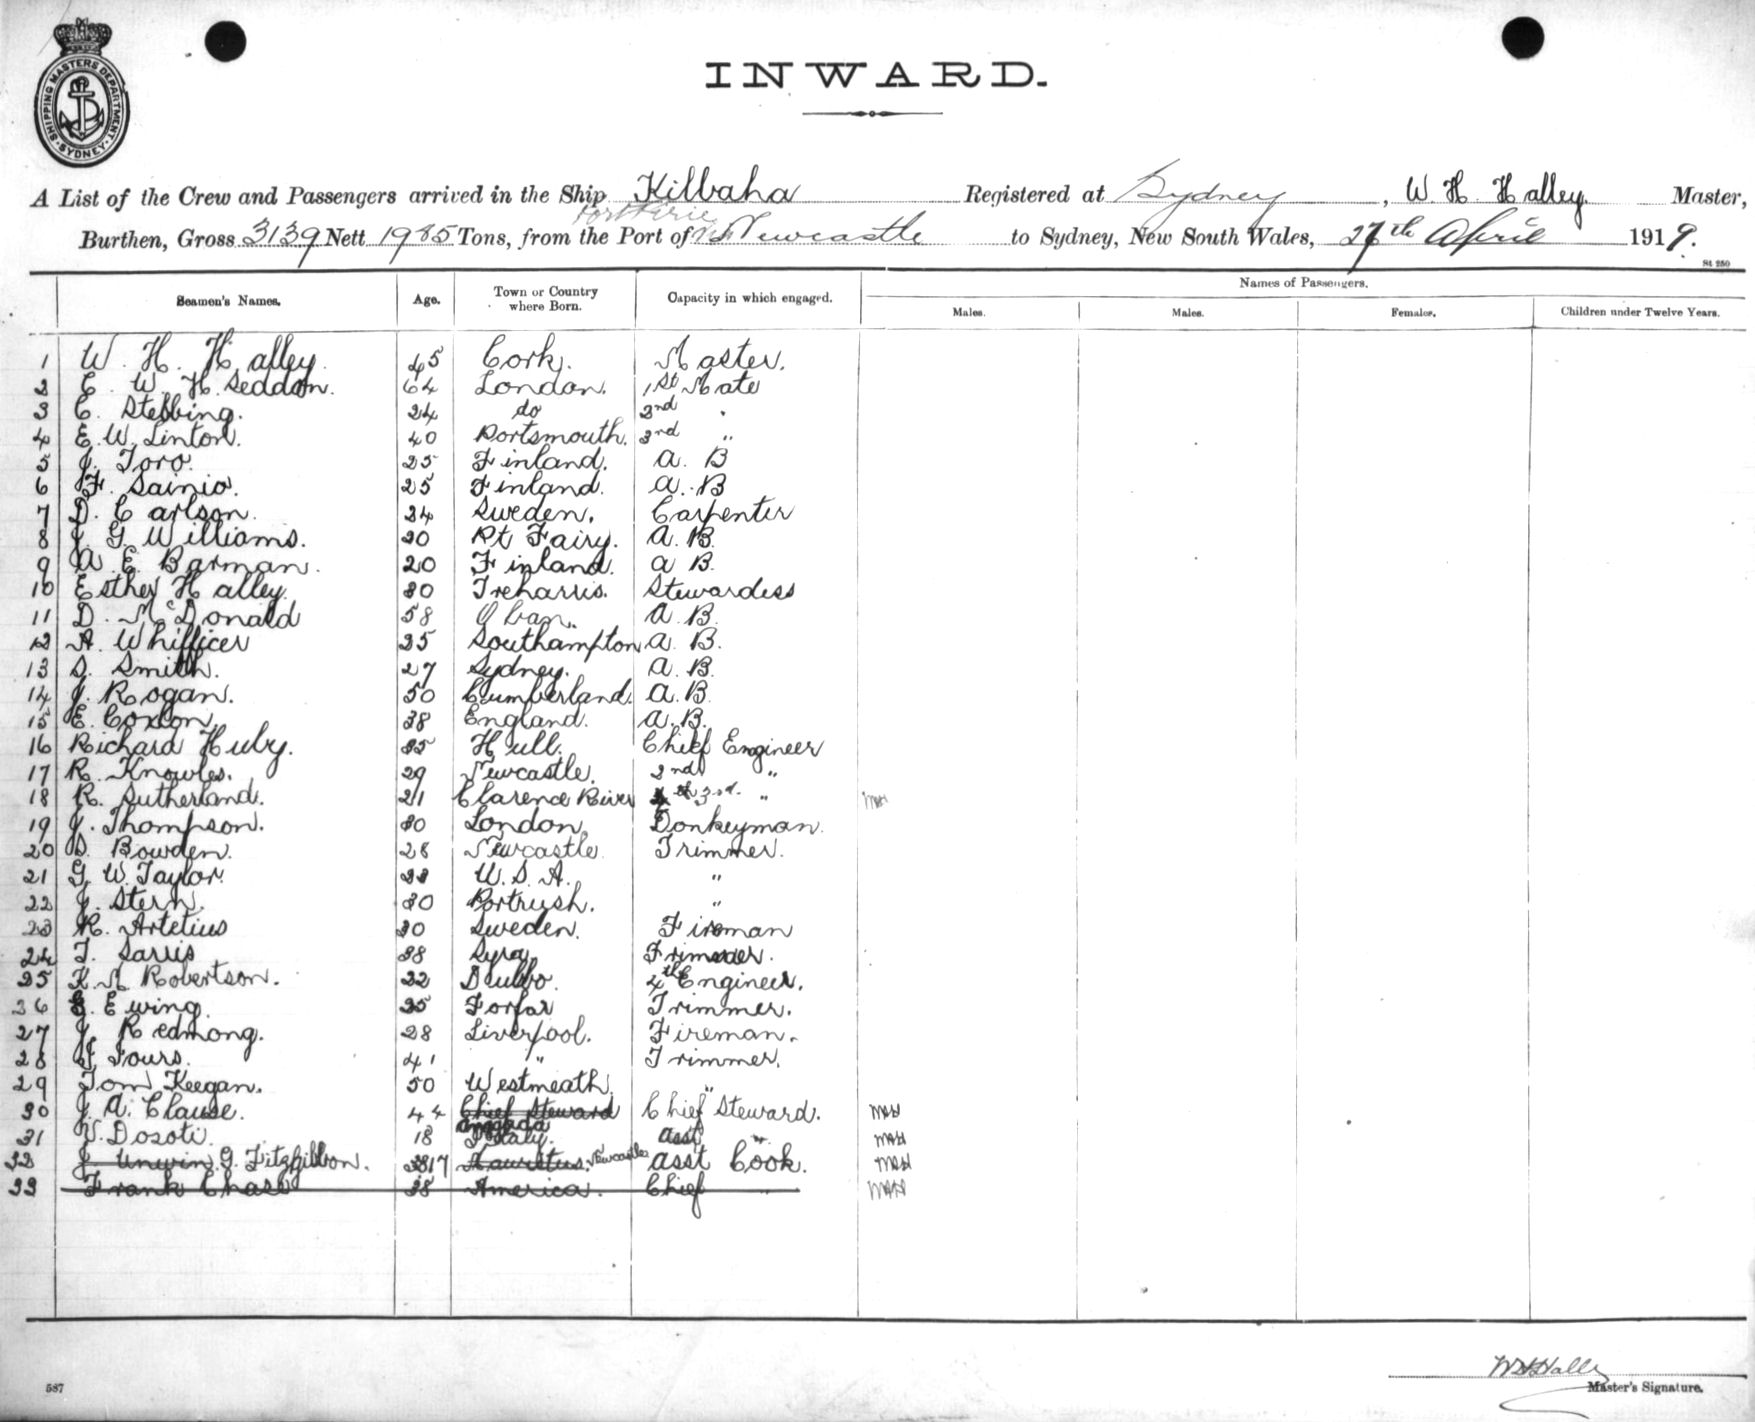 SHIPPING MASTERS DEPARTMENT SYDNEY
INWARD.
A List of the Crew and Passengers arrived in the Ship Kilbaha Registered at Sydney, W. H. Halley. Master,
Port Pirie
Burthen, Gross 3139 Nett 1985 Tons, from the Port of Newcastle to Sydney, New South Wales, 27th April 1919.
St 250
Seamen's Names. Age. Town or Country where Born. Capacity in which engaged. Names of Passengers.
Males. Males. Females. Children under Twelve Years.
1 W. H. Halley. 45 Cork. Master.
2 E. W. H. Seddon. 64 London. 1st Mate
3 C. Stebbing. 24 do 2nd "
4 E. W. Linton. 40 Portsmouth. 3rd "
5 J. Toro. 25 Finland. A. B
6 F. Sainio. 25 Finland. A. B
7 D. Carlson. 24 Sweden. Carpenter
8 J. G. Williams. 20 Pt Fairy. A. B.
9 A. E. Barman. 20 Finland. A B.
10 Esther Halley. 30 Treharris. Stewardess
11 D. McDonald 58 Oban. A. B.
12 A. Whifficer 25 Southampton A. B.
13 S. Smith. 27 Sydney. A. B.
14 J. Rogan. 50 Cumberland. A. B.
15 E. Coxlon. 38 England. A. B.
16 Richard Huby. 35 Hull. Chief Engineer
17 R. Knowles. 29 Newcastle. 2nd "
18 R. Sutherland. 21 Clarence River 3rd. "
19 J. Thompson. 30 London. Donkeyman.
20 S. Bowden. 28 Newcastle. Trimmer.
21 G. W. Taylor. U. S. A. "
22 J. Stern. 30 Portrush. "
23 R. Artelius 30 Sweden. Fireman
24 T. Sarris 38 Syra. Trimmer.
25 K. M Robertson. 22 Dubbo. 4th Engineer.
26 G. Ewing. 25 Forfar Trimmer.
27 J. Redmong. 28 Liverpool. Fireman.
28 J. Fours. 41 " Trimmer.
29 Tom Keegan. 50 Westmeath. "
30 J. A. Clause. 44 Chief Steward Chief Steward.
31 V. Dosoti. 18 Italy. Asst "
32 J. Unwin. G. Fitzgibbon. 17 Mauritus. Newcastle Asst Cook.
33 Frank Chase 38 America. Chief
587
W H Halley
Master's Signature.